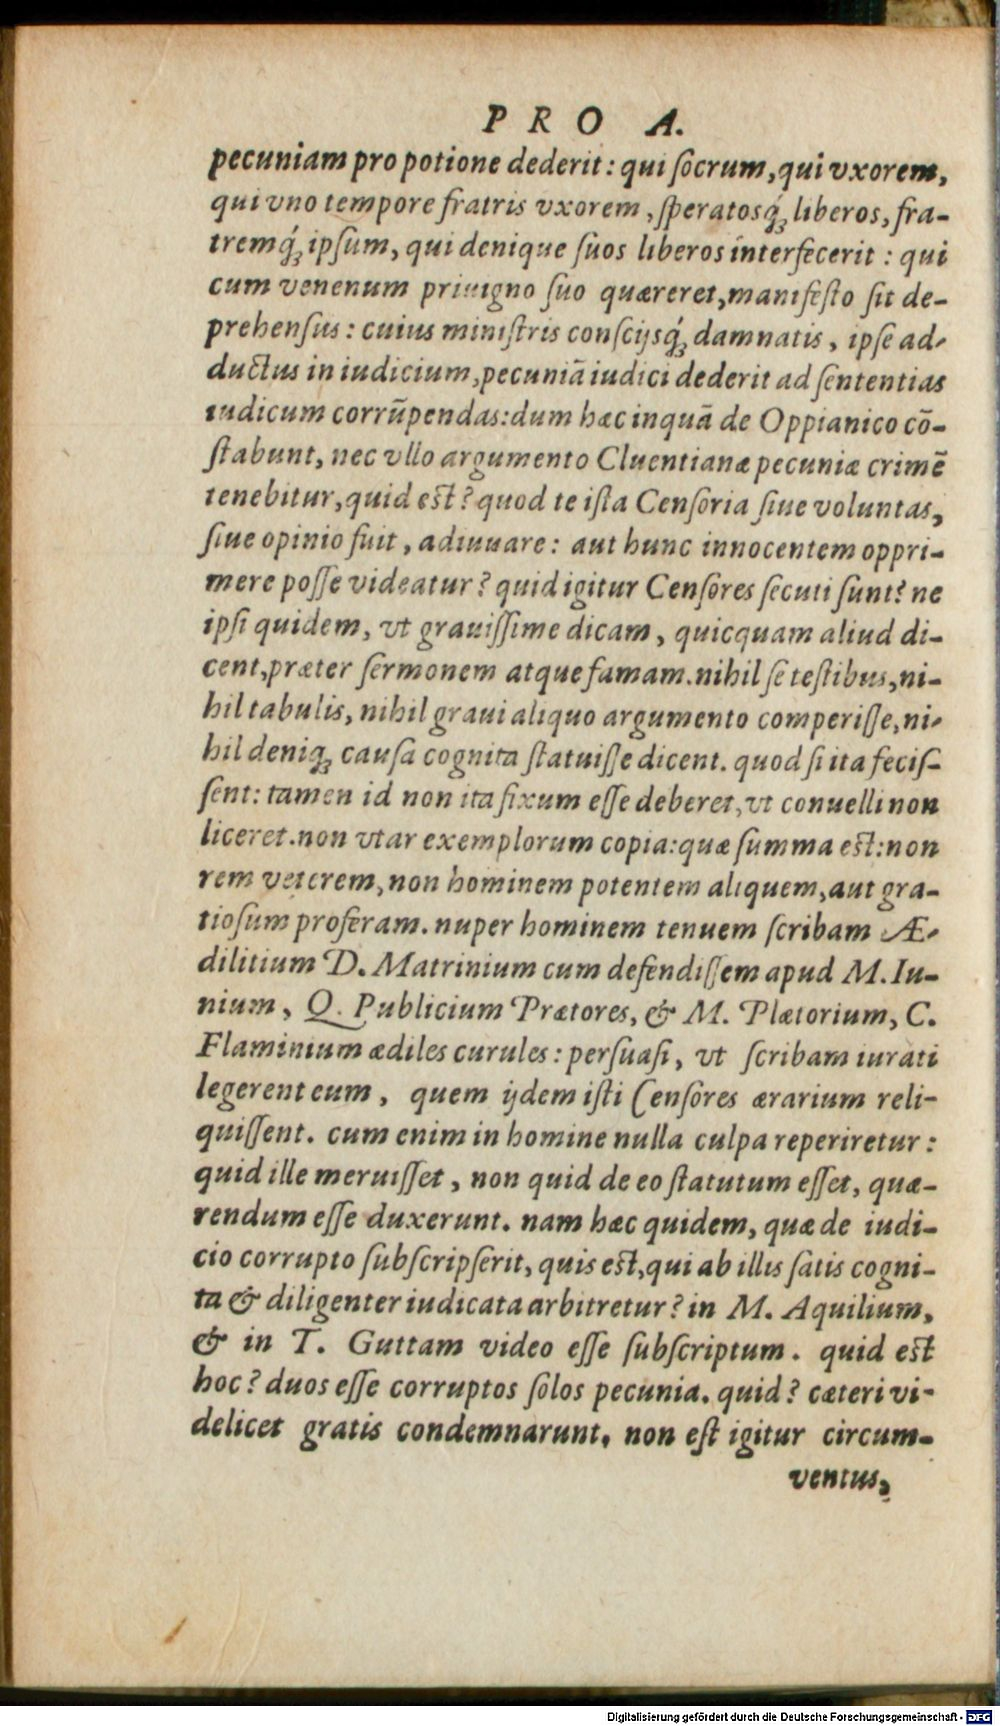 PRO A.
pecuniam pro potione dederit: qui ſocrum, qui vxorem,
qui vno tempore fratris vxorem, ſperatosq́; liberos, fra-
tremq́; ipſum, qui denique ſuos liberos interfecerit: qui
cum venenum priuigno ſuo quæreret, manifeſto ſit de-
prehenſus: cuius miniſtris conſcijsq́; damnatis, ipſe ad-
ductus in iudicium, pecuniā iudici dederit ad ſententias
iudicum corrūpendas: dum hæc inquā de Oppianico cō-
ſtabunt, nec vllo argumento Cluentianæ pecuniæ crimē
tenebitur, quid eſt? quod te iſta Cenſoria ſiue voluntas,
ſiue opinio fuit, adiuuare: aut hunc innocentem oppri-
mere poſſe videatur? quid igitur Cenſores ſecuti ſunt? ne
ipſi quidem, vt grauiſſime dicam, quicquam aliud di-
cent, præter ſermonem atque famam. nihil ſe teſtibus, ni-
hil tabulis, nihil graui aliquo argumento comperiſſe, ni-
hil deniq; cauſa cognita ſtatuiſſe dicent. quod ſi ita feciſ-
ſent: tamen id non ita fixum eſſe deberet, vt conuelli non
liceret. non vtar exemplorum copia: quæ ſumma eſt: non
rem veterem, non hominem potentem aliquem, aut gra-
tioſum proferam. nuper hominem tenuem ſcribam Æ-
dilitium D. Matrinium cum defendiſſem apud M. Iu-
nium, Q. Publicium Prætores, & M. Plætorium, C.
Flaminium ædiles curules: perſuaſi, vt ſcribam iurati
legerent eum, quem ijdem iſti Cenſores ærarium reli-
quiſſent. cum enim in homine nulla culpa reperiretur:
quid ille meruiſſet, non quid de eo ſtatutum eſſet, quæ-
rendum eſſe duxerunt. nam hæc quidem, quæ de iudi-
cio corrupto ſubſcripſerit, quis eſt, qui ab illis ſatis cogni-
ta & diligenter iudicata arbitretur? in M. Aquilium,
& in T. Guttam video eſſe ſubſcriptum. quid eſt
hoc? duos eſſe corruptos ſolos pecunia. quid? cæteri vi-
delicet gratis condemnarunt. non eſt igitur circum-
ventus,
Digitalisierung gefördert durch die Deutsche Forschungsgemeinschaft - DFG